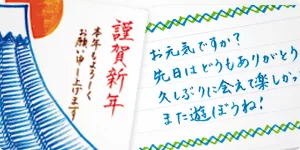 謹賀新年
本年もよろしく
お願い申し上げます
お元気ですか?
先日はどうもありがとう
久しぶりに会えて楽しか
また遊ぼうね!